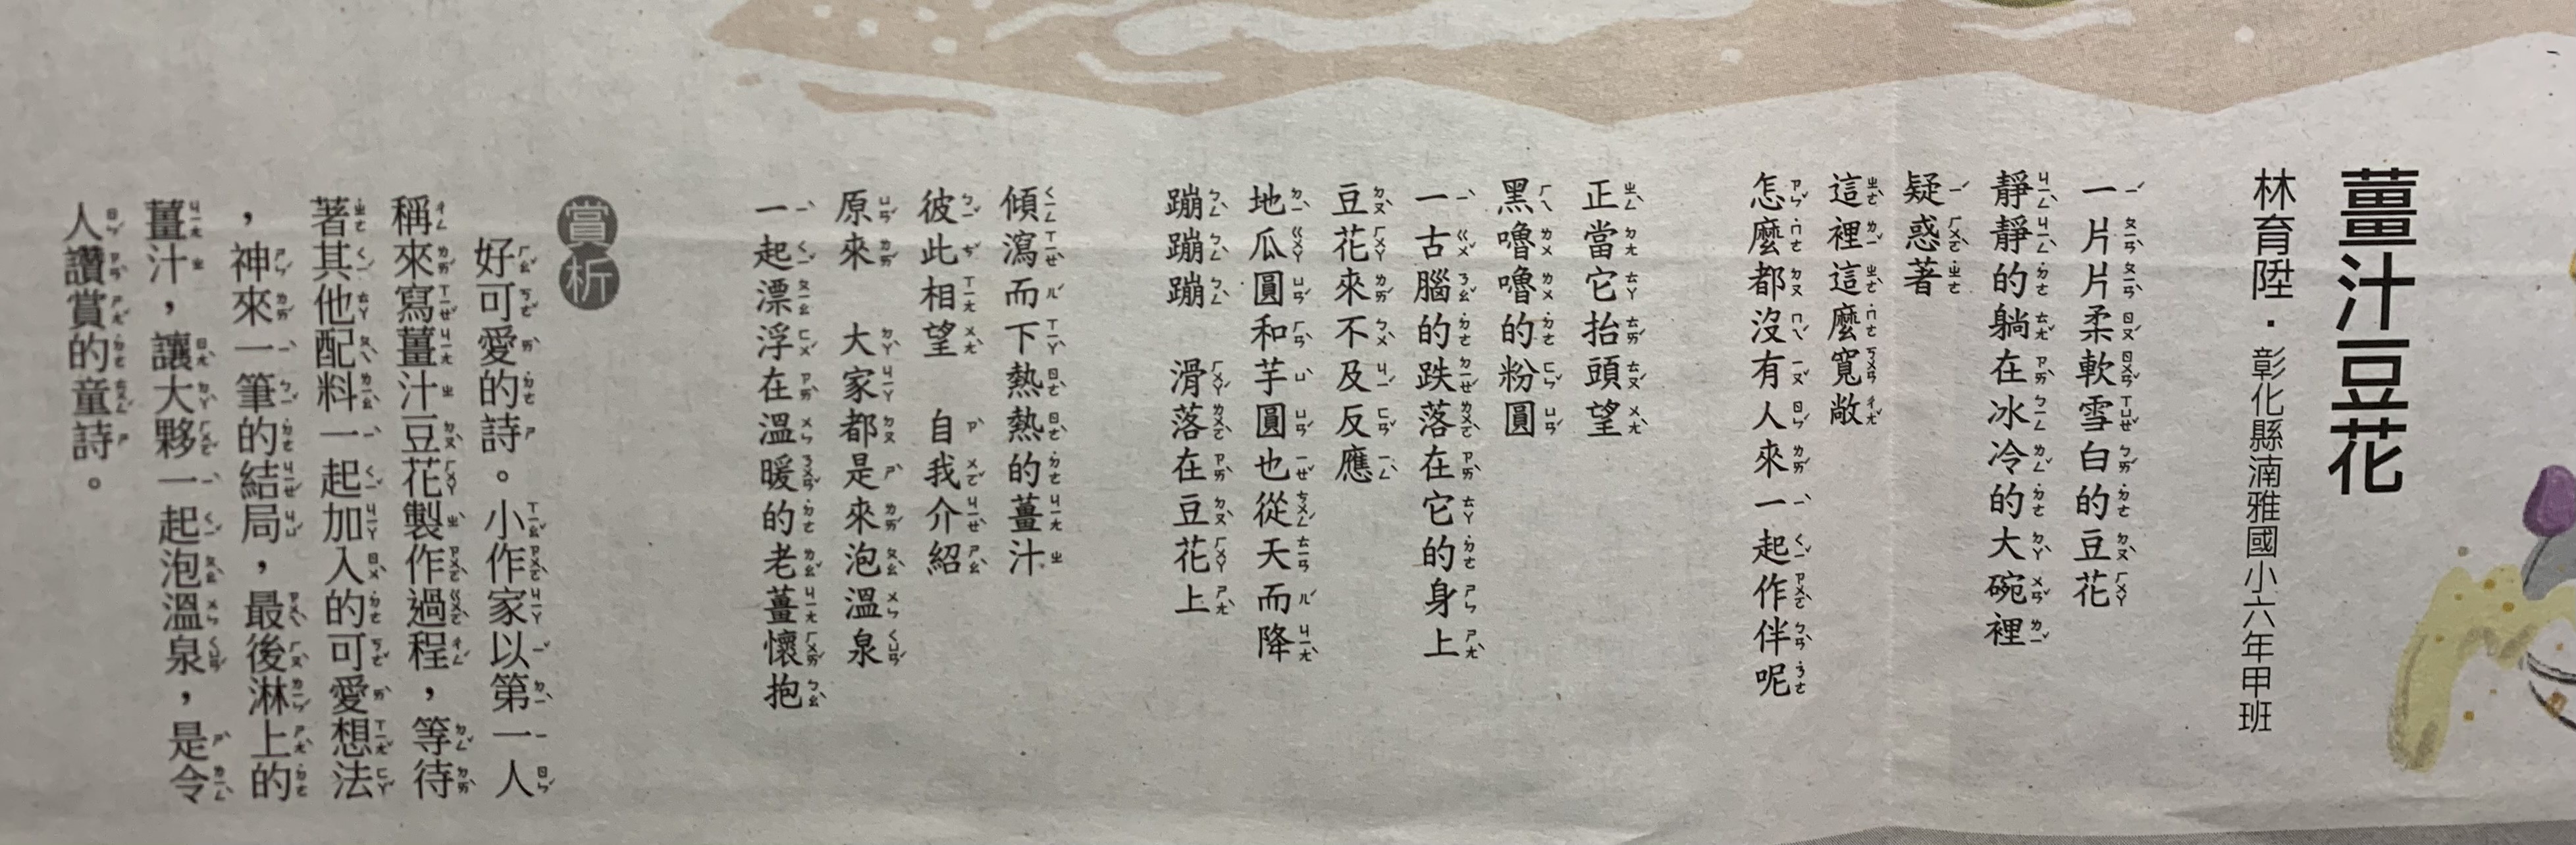 薑汁豆花
林育陞．彰化縣湳雅國小六年甲班
一片片柔軟雪白的豆花
靜靜的躺在冰冷的大碗裡
疑惑著
這裡這麼寬敞
怎麼都沒有人來一起作伴呢
正當它抬頭望
黑嚕嚕的粉圓
一古腦的跌落在它的身上
豆花來不及反應
地瓜圓和芋圓也從天而降
蹦蹦蹦　滑落在豆花上
傾瀉而下熱熱的薑汁
彼此相望　自我介紹
原來　大家都是來泡溫泉
一起漂浮在溫暖的老薑懷抱
賞析
好可愛的詩。小作家以第一人
稱來寫薑汁豆花製作過程，等待
著其他配料一起加入的可愛想法
，神來一筆的結局，最後淋上的
薑汁，讓大夥一起泡溫泉，是令
人讚賞的童詩。